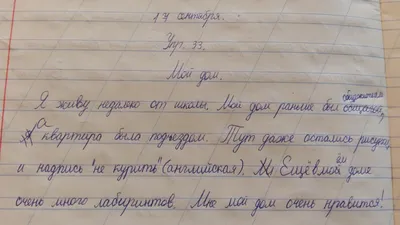 17 сентября.
Упр. 33.
Мой дом.
Я живу недалеко от школы. Мой дом раньше был общагой,
а квартира была подъездом. Тут даже остались рисунки
и надпись "не курить" (английская). Ещё в моём доме
очень много лабиринтов. Мне мой дом очень нравится!